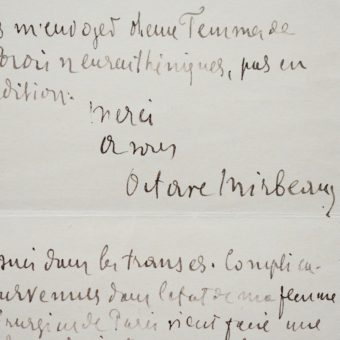 m'envoyez
neurasthéniques, pas en
dition.
Merci
à vous
Octave Mirbeau
suis dans les transes. Complica-
survenues dans l'état de ma femme
rurgien de Paris vient faire une